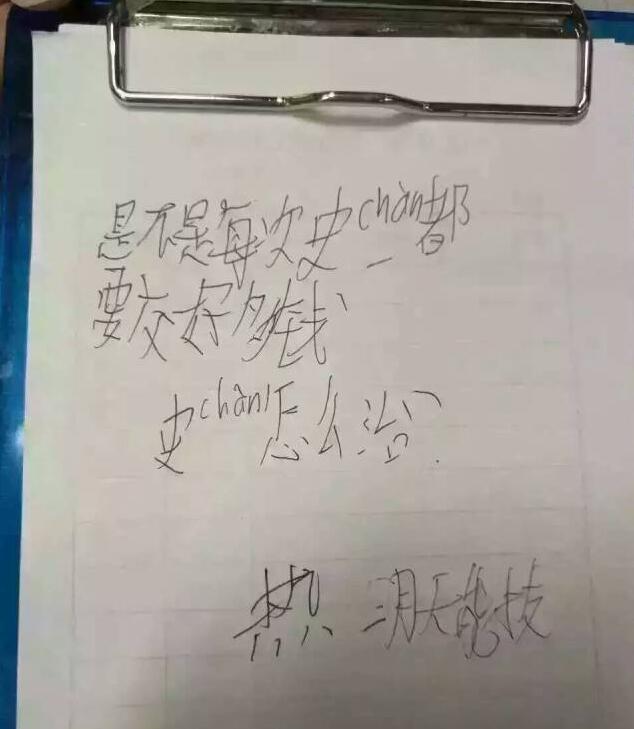 是不是每次史chàn都
要交好多钱
史chàn怎么治
热 明天能拔